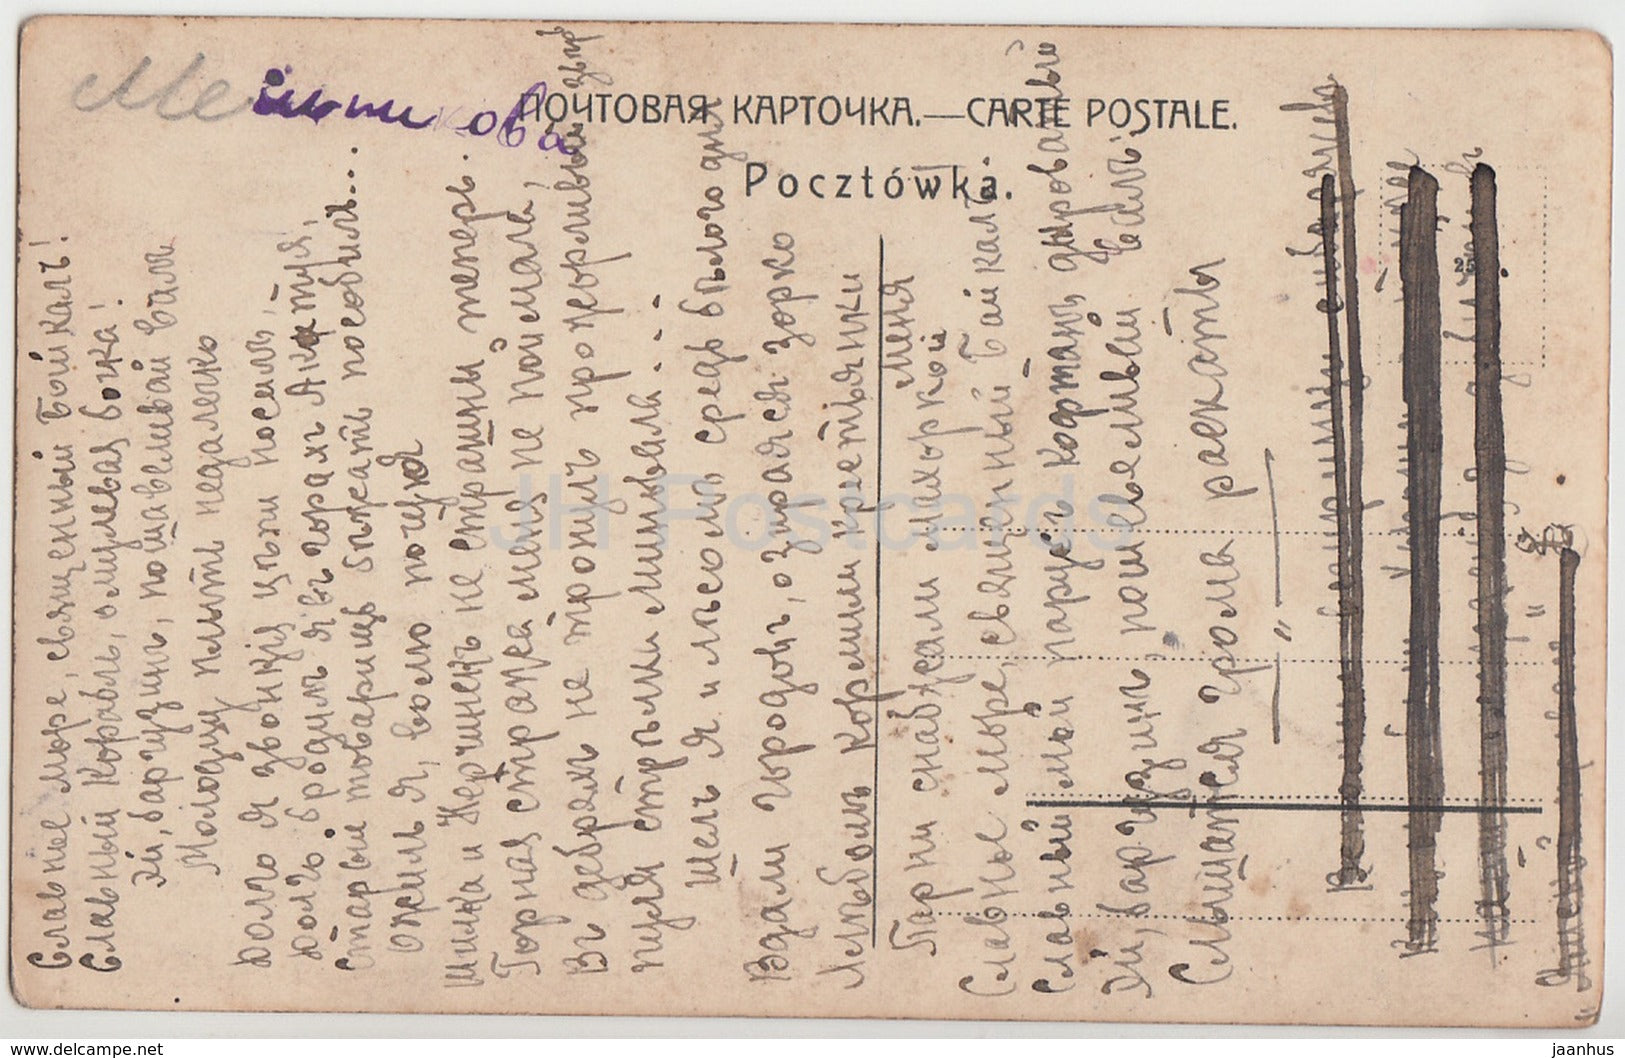 Мельникова
ПОЧТОВАЯ КАРТОЧКА.—CARTE POSTALE.
Pocztówka.
Славное море, священный Байкалъ!
Славный корабль, омулевая бочка!
Эй, баргузинъ, пошевливай валъ
Молодцу плыть недалеко
Долго я звонкія цѣпи носилъ,
Долго бродилъ я въ горахъ Акатуя,
Старый товарищъ бѣжать пособилъ...
Ожилъ я, волю почуя
Шилка и Нерчинскъ не страшны теперь.
Горная стража меня не поймала,
Въ дебряхъ не тронулъ прожорливый звѣрь
Пуля стрѣлка миновала....
Шелъ я и лѣсомъ средь бѣлого дня
Вдали городовъ, озирался зорко
Хлѣбомъ кормили крестьянки меня
Парни снабжали махоркой
Славное море, священный Байкалъ
Славный мой парусъ кафтанъ дыроватый
Эй, баргузинъ, пошевливай валъ
Слышатся грома раскаты
JH Postcards
delcampe.net
jaanhus